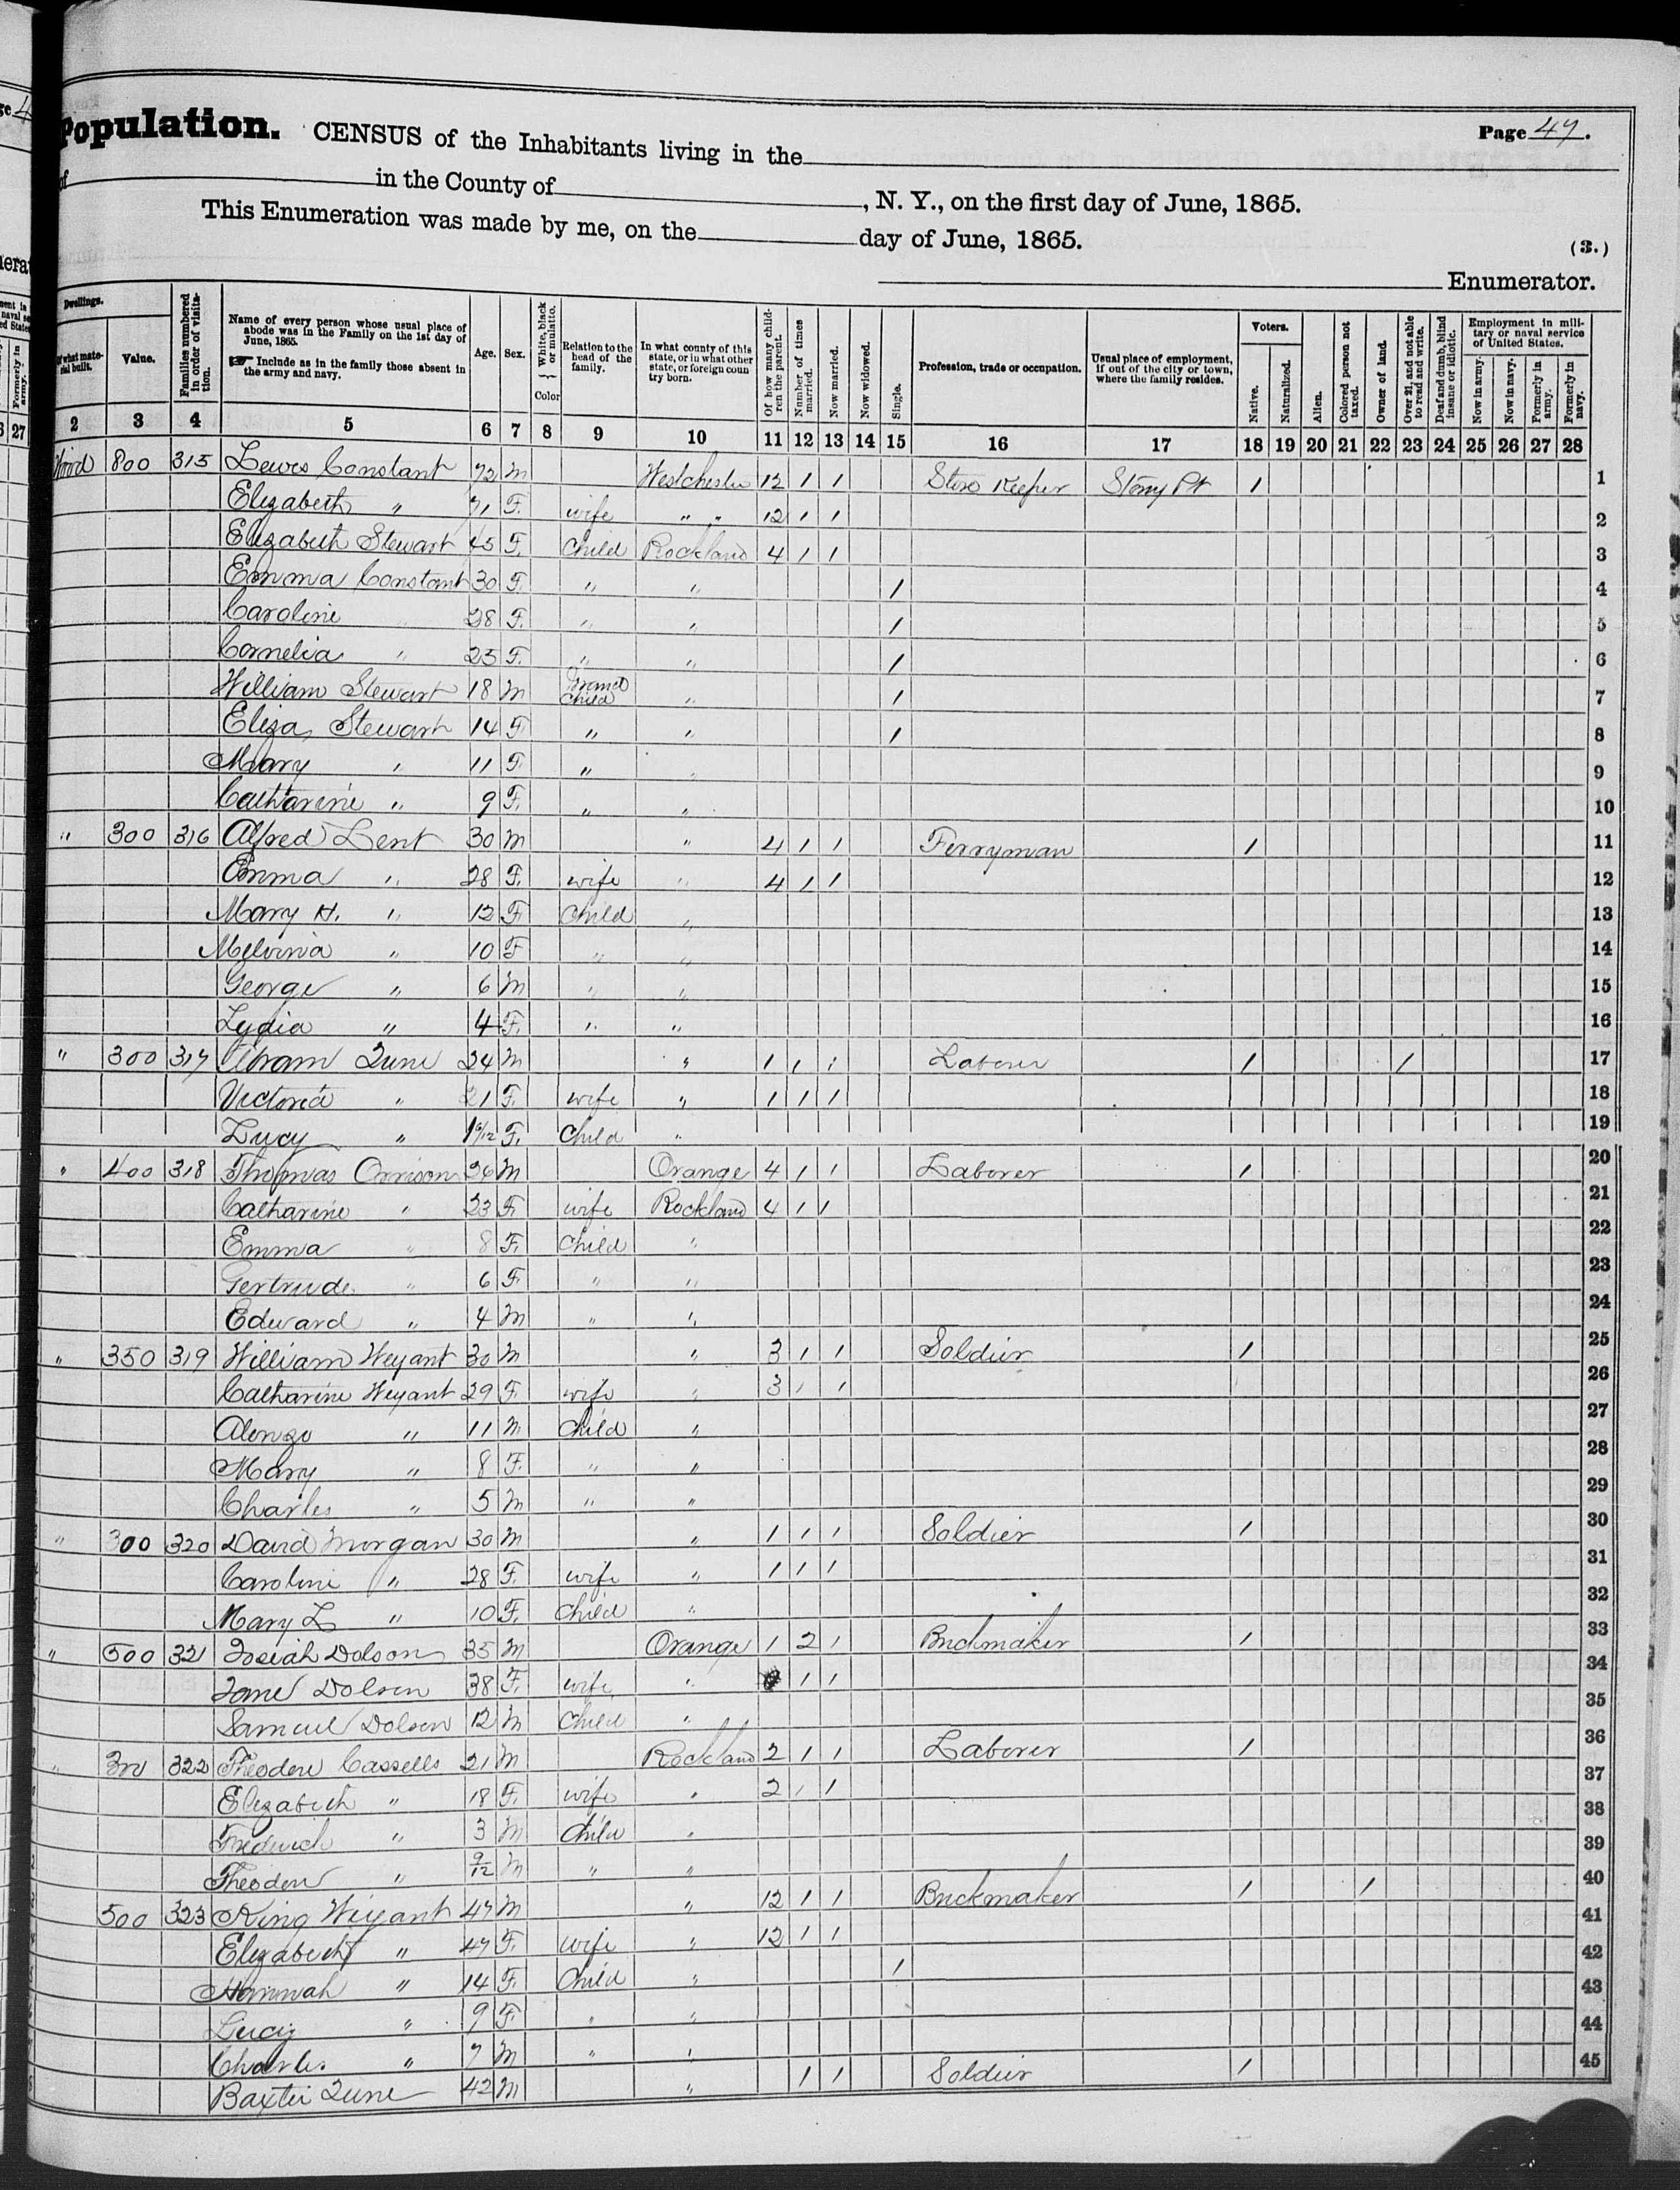 Population. CENSUS of the Inhabitants living in the Page 47.
of in the County of , N. Y., on the first day of June, 1865.
This Enumeration was made by me, on the day of June, 1865. (3.)
Enumerator.
Dwellings. Of what material built. Value. Families numbered in order of visitation. Name of every person whose usual place of abode was in the Family on the 1st day of June, 1865. Include as in the family those absent in the army and navy. Age. Sex. White, black or mulatto. Color Relation to the head of the family. In what county of this state, or in what other state, or foreign coun try born. Of how many children the parent. Number of times married. Now married. Now widowed. Single. Profession, trade or occupation. Usual place of employment, if out of the city or town, where the family resides. Voters. Native. Naturalized. Alien. Colored person not taxed. Owner of land. Over 21, and not able to read and write. Deaf and dumb, blind insane or idiotic. Employment in military or naval service of United States. Now in army. Now in navy. Formerly in army. Formerly in navy.
2 3 4 5 6 7 8 9 10 11 12 13 14 15 16 17 18 19 20 21 22 23 24 25 26 27 28
Wood 800 315 Lewis Constant 72 M Westchester 12 1 1 Store Keeper Stony Pt 1 1
Elizabeth " 71 F. wife " " 12 1 1 2
Elizabeth Stewart 45 F. Child Rockland 4 1 1 3
Emma Constant 30 F. " " 1 4
Caroline " 28 F. " " 1 5
Cornelia " 25 F. " " 1 6
William Stewart 18 M Grand Child " 1 7
Eliza Stewart 14 F " " 1 8
Mary " 11 F " " 9
Catharine " 9 F. " " 10
" 300 316 Alfred Lent 30 M " 4 1 1 Ferryman 1 11
Emma " 28 F. wife " 4 1 1 12
Mary H. " 12 F Child " 13
Melvina " 10 F " " 14
George " 6 M " " 15
Lydia " 4 F. " " 16
" 300 317 Abram June 24 M " 1 1 1 Laborer 1 1 17
Victoria " 21 F. wife " 1 1 1 18
Lucy " F. Child " 19
" 400 318 Thomas Orrison 26 M Orange 4 1 1 Laborer 1 20
Catharine " 23 F. wife Rockland 4 1 1 21
Emma " 8 F. Child " 22
Gertrude " 6 F " " 23
Edward " 4 M " " 24
" 350 319 William Weyant 30 M " 3 1 1 Soldier 1 25
Catharine Weyant 29 F. wife " 3 1 1 26
Alonzo " 11 M Child " 27
Mary " 8 F. " " 28
Charles " 5 M " " 29
" 300 320 David Morgan 30 M " 1 1 1 Soldier 1 30
Caroline " 28 F. wife " 1 1 1 31
Mary L " 10 F. Child " 32
" 500 321 Josiah Dolson 35 M Orange 1 2 1 Brickmaker 1 33
Jane Dolson 38 F. wife " 1 1 34
Samuel Dolson 12 M Child " 35
" 300 322 Theodore Cassells 21 M Rockland 2 1 1 Laborer 1 36
Elizabeth " 18 F. wife " 2 1 1 37
Fredrich " 3 M Child " 38
Theodore " 9/12 M " " 39
500 323 King Weyant 47 M " 12 1 1 Brickmaker 1 1 40
Elizabeth " 47 F. wife " 12 1 1 41
Hannah " 14 F. Child " 1 42
Lucy " 9 F. " " 43
Charles " 7 M " " 44
Baxter June 42 M " 1 1 Soldier 1 45